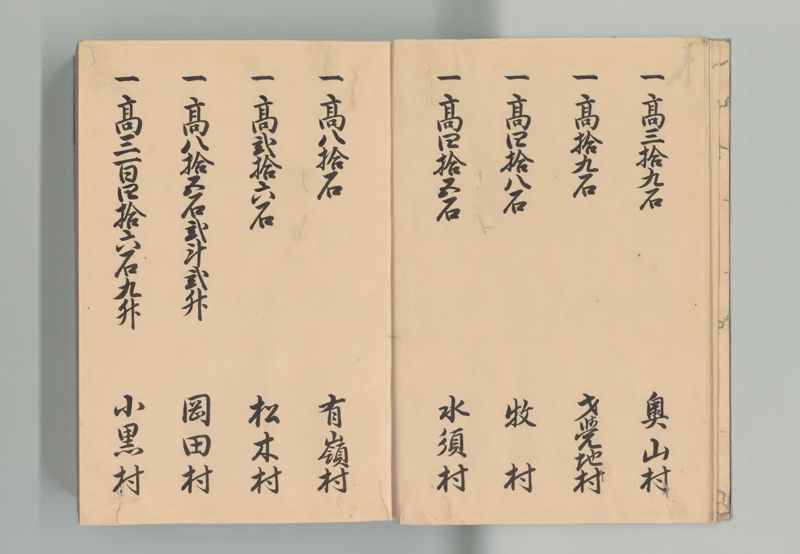 一高三拾九石 奥山村
一高拾九石 才覚地村
一高四拾八石 牧村
一高四拾五石 水須村
一高八拾石 有嶺村
一高弐拾六石 松木村
一高八拾五石弐斗弐升 岡田村
一高三百四拾六石九升 小黒村